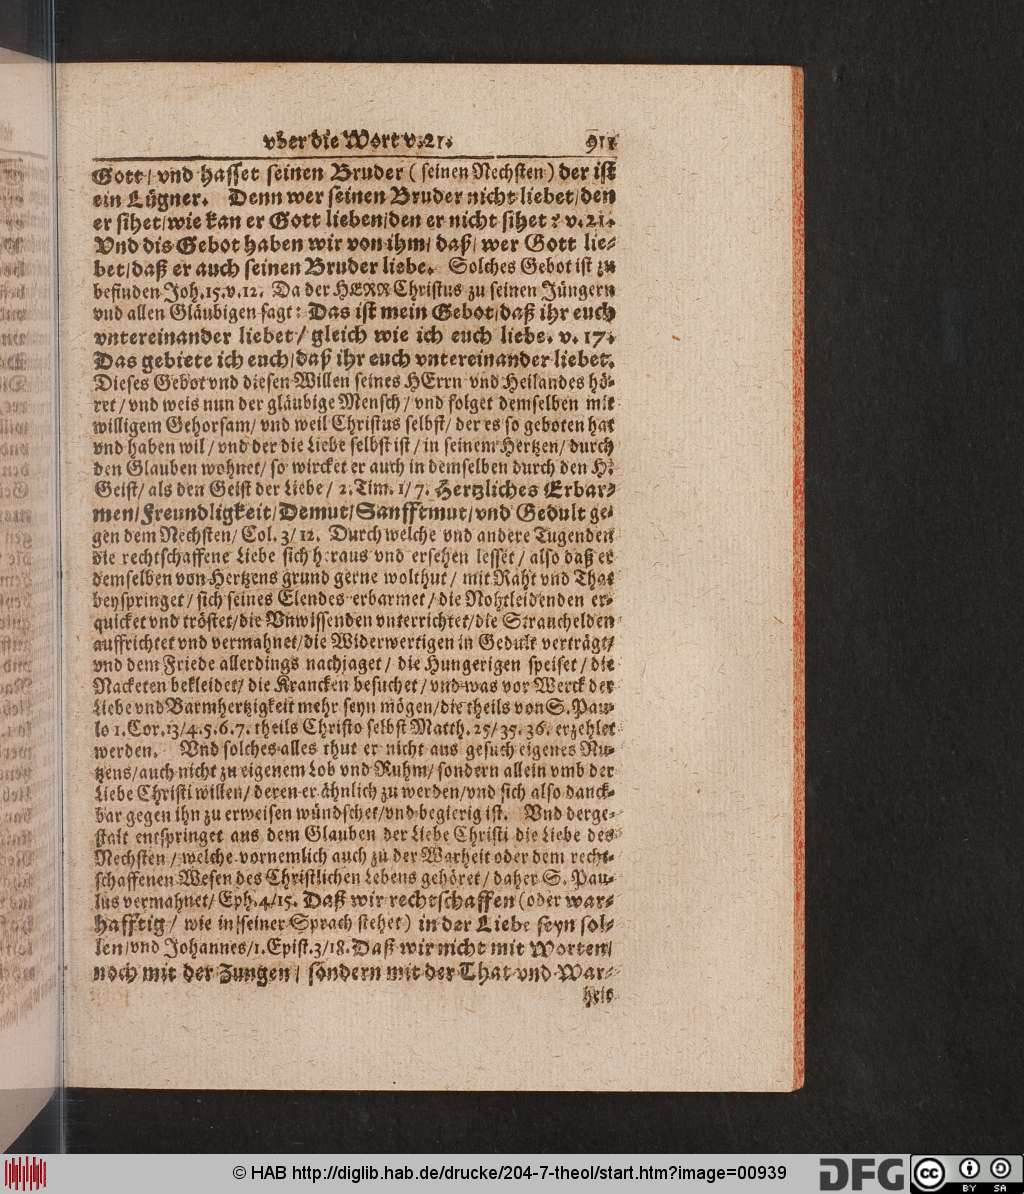 vber die Wort v. 21. 911
Gott/ vnd hasset seinen Bruder ( seinen Nechsten ) der ist
ein Lügner. Denn wer seinen Bruder nicht liebet/ den
er sihet/ wie kan er Gott lieben/ den er nicht sihet? v. 21.
Vnd dis Gebot haben wir von ihm/ daß/ wer Gott lie-
bet/ daß er auch seinen Bruder liebe. Solches Gebot ist zu
befinden Joh. 15. v. 12. Da der HERR Christus zu seinen Jüngern
vnd allen Gläubigen sagt: Das ist mein Gebot/ daß ihr euch
vntereinander liebet/ gleich wie ich euch liebe. v. 17.
Das gebiete ich euch/ daß ihr euch vntereinander liebet.
Dieses Gebot vnd diesen Willen seines HErrn vnd Heilandes hö-
ret/ vnd weis nun der gläubige Mensch/ vnd folget demselben mit
willigem Gehorsam/ vnd weil Christus selbst/ der es so geboten hat
vnd haben wil/ vnd der die Liebe selbst ist/ in seinem Hertzen/ durch
den Glauben wohnet/ so wircket er auch in demselben durch den H.
Geist/ als den Geist der Liebe/ 2. Tim. 1/ 7. Hertzliches Erbar-
men/ Freundligkeit/ Demut/ Sanfftmut/ vnd Gedult ge-
gen dem Nechsten/ Col. 3/ 12. Durch welche vnd andere Tugenden
die rechtschaffene Liebe sich heraus vnd ersehen lesset/ also daß er
demselben von Hertzens grund gerne wolthut/ mit Raht vnd That
beyspringet/ sich seines Elendes erbarmet/ die Nohtleidenden er-
quicket vnd tröstet/ die Vnwissenden vnterrichtet/ die Strauchelden
auffrichtet vnd vermahnet/ die Widerwertigen in Gedult verträgt/
vnd dem Friede allerdings nachjaget/ die Hungerigen speiset/ die
Nacketen bekleidet/ die Krancken besuchet/ vnd was vor Werck der
Liebe vnd Barmhertzigkeit mehr seyn mögen/ die theils von S. Pau-
lo 1. Cor. 13/ 4. 5. 6. 7. theils Christo selbst Matth. 25/ 35. 36. erzehlet
werden. Vnd solches alles thut er nicht aus gesuch eigenes Nu-
tzens/ auch nicht zu eigenem Lob vnd Ruhm/ sondern allein vmb der
Liebe Christi willen/ deren er ähnlich zu werden/ vnd sich also danck-
bar gegen ihn zu erweisen wündschet/ vnd begierig ist. Vnd derge-
stalt entspringet aus dem Glauben der Liebe Christi die Liebe des
Nechsten/ welche vornemlich auch zu der Warheit oder dem recht-
schaffenen Wesen des Christlichen Lebens gehöret/ daher S. Pau-
lus vermahnet/ Eph. 4/ 15. Daß wir rechtschaffen (oder war-
hafftig/ wie in seiner Sprach stehet) in der Liebe seyn sol-
len/ vnd Johannes/ 1. Epist. 3/ 18. Daß wir nicht mit Worten/
noch mit der Zungen/ sondern mit der That vnd War-
heit
© HAB http://diglib.hab.de/drucke/204-7-theol/start.htm?image=00939
DFG
cc BY SA